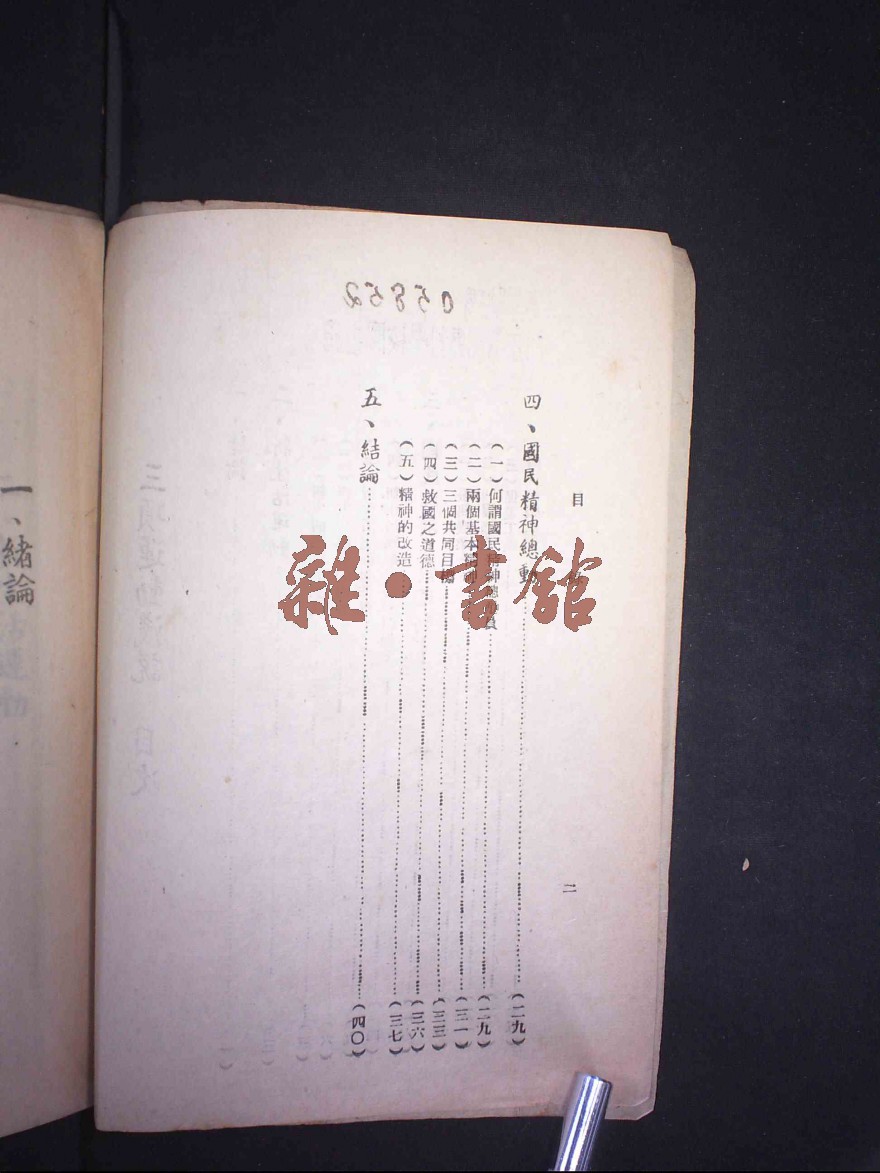 目
二
四、國民精神總動
(一)何謂國民精神總動員(二九)
(二)兩個基本精神(三一)
(三)三個共同目標(三三)
(四)救國之道德(三六)
(五)精神的改造(三七)
五、結論(四〇)
(二九)
05852
一、緒論
雜·書館